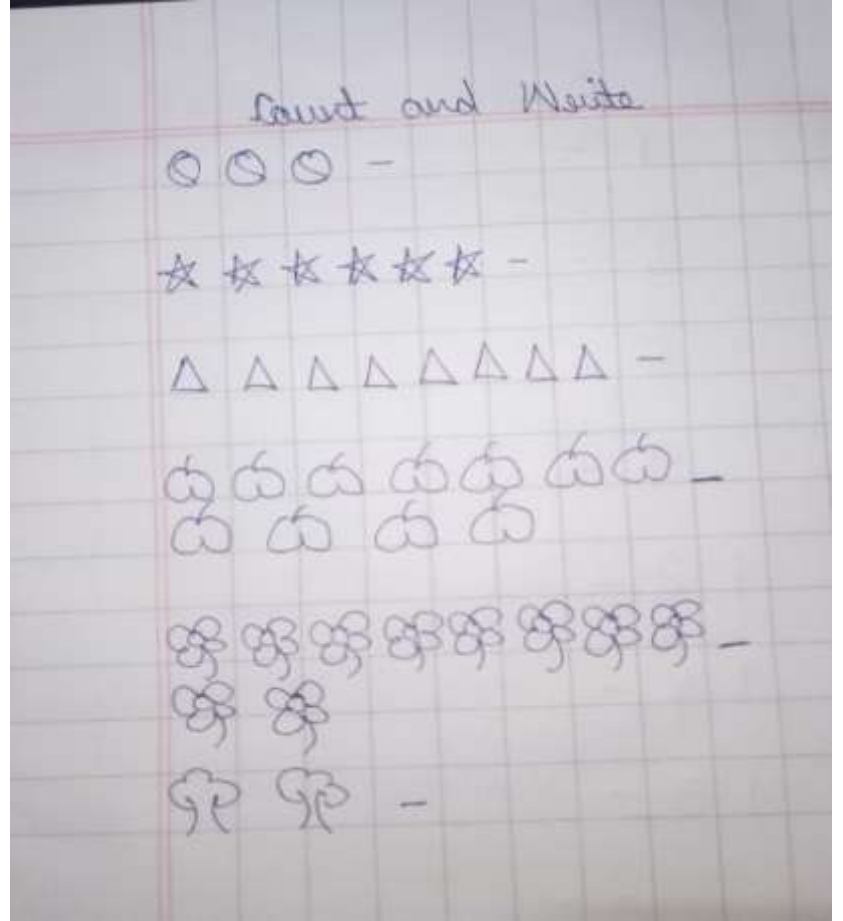 Count and Write